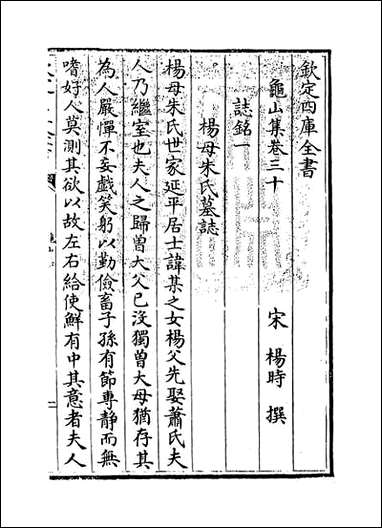 欽定四庫全書
龜山集卷三十
宋 楊時 撰
誌銘一
楊母朱氏墓誌
楊母朱氏世家延平居士諱某之女楊父先娶蕭氏夫
人乃繼室也夫人之歸曾大父已沒獨曾大母猶存其
為人嚴憚不妄戲笑躬以勤儉畜子孫有節専静而無
嗜好人莫測其欲以故左右給使鮮有中其意者夫人